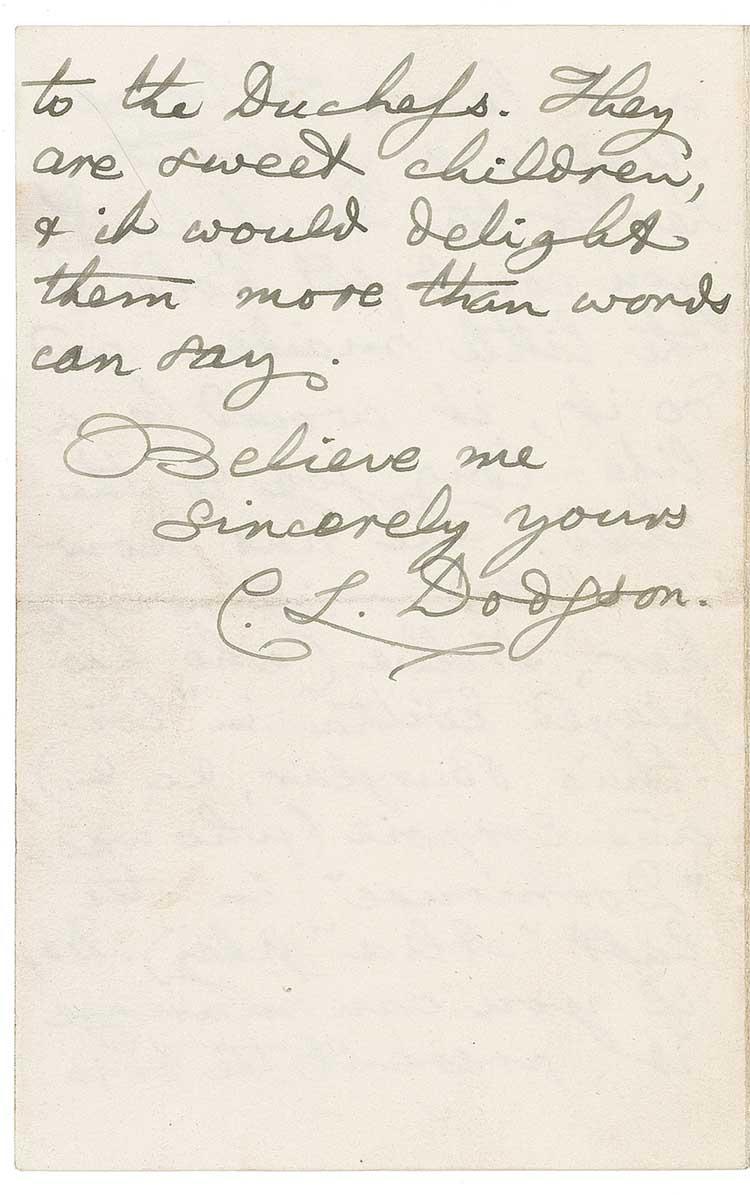 to the Duchess. They
are sweet children,
& it would delight
them more than words
can say.
Believe me
sincerely yours
C. L. Dodgson.